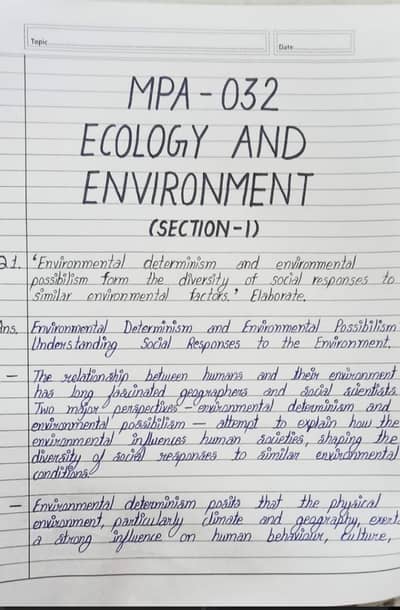 Topic
Date
MPA-032
ECOLOGY AND
ENVIRONMENT
(SECTION-I)
Q1. 'Environmental determinism and environmental
possibilism form the diversity of social responses to
similar environmental factors.' Elaborate.
Ans. Environmental Determinism and Environmental Possibilism
Understanding Social Responses to the Environment.
— The relationship between humans and their environment
has long fascinated geographers and social scientists
Two major perspectives — environmental determinism and
environmental possibilism — attempt to explain how the
environmental influences human societies, shaping the
diversity of social responses to similar environmental
conditions.
— Environmental determinism posits that the physical
environment, particularly climate and geography, exert
a strong influence on human behaviour, culture,